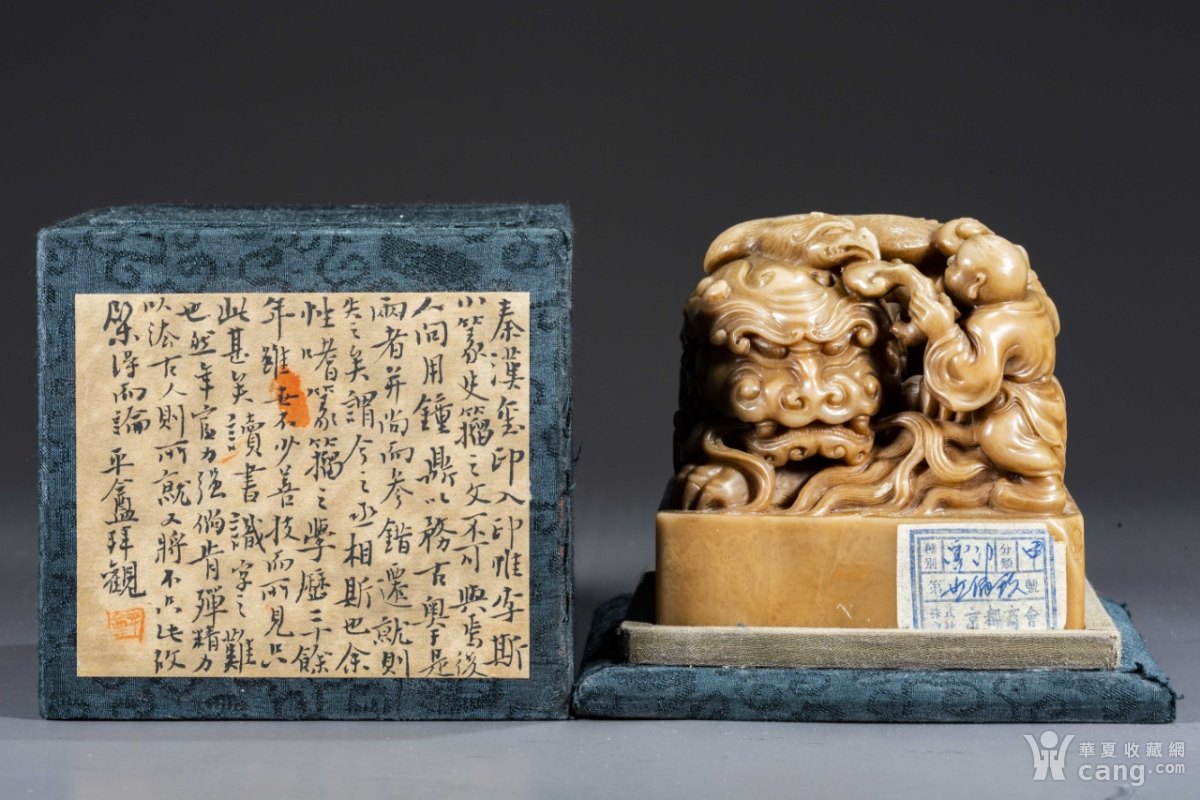 秦漢璽印入印惟李斯
小篆史籀之文不可與焉後
人問用鐘鼎以務古奧于是
兩者并尚而參錯遷就則
失之矣謂今之丞相斯也余
性嗜篆籀之學歷三十餘
年雖不少善技而所見只
此甚矣讀書識字之難
也然年富力強倘肯殫精力
以法古人則所就又將不只此故
縣得而論 平盦拜觀
種別
分類 甲
第
號
株式會社京都商會
華夏收藏網
cang.com